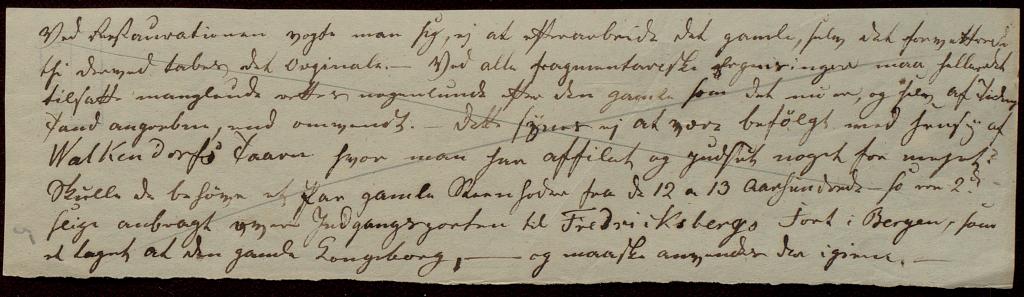 Ved Restaurationen vogte man sig, ej at efterarbeide det gamle, selv det forvittrede
thi derved tabes det Orginale. — Ved alle fragmentariske ergensinger maa hellere det
tilsatte manglende rettes nogenlunde efter den gamle som det nu er, og selv af Tidens
Tand angreben, end omvendt. — Dette synes ej at være befølgt med hensyn af
Walkendorfs Taarn hvor man har affilet og pudset noget for meget?
Skulle de behøve et Par gamle Steenhoder fra de 12 a 13 Aarhundrede — so ere 2de
slige anbragt over Indgangsporten til Fredriiksbergs Fort i Bergen, som
er taget at den gamle Kongeborg, — og maaske anvendes der igien. —